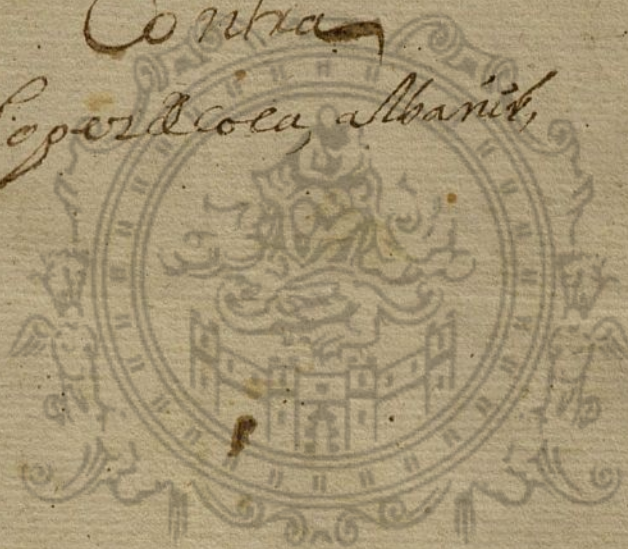 Contra
Loper de Coca, albanil,